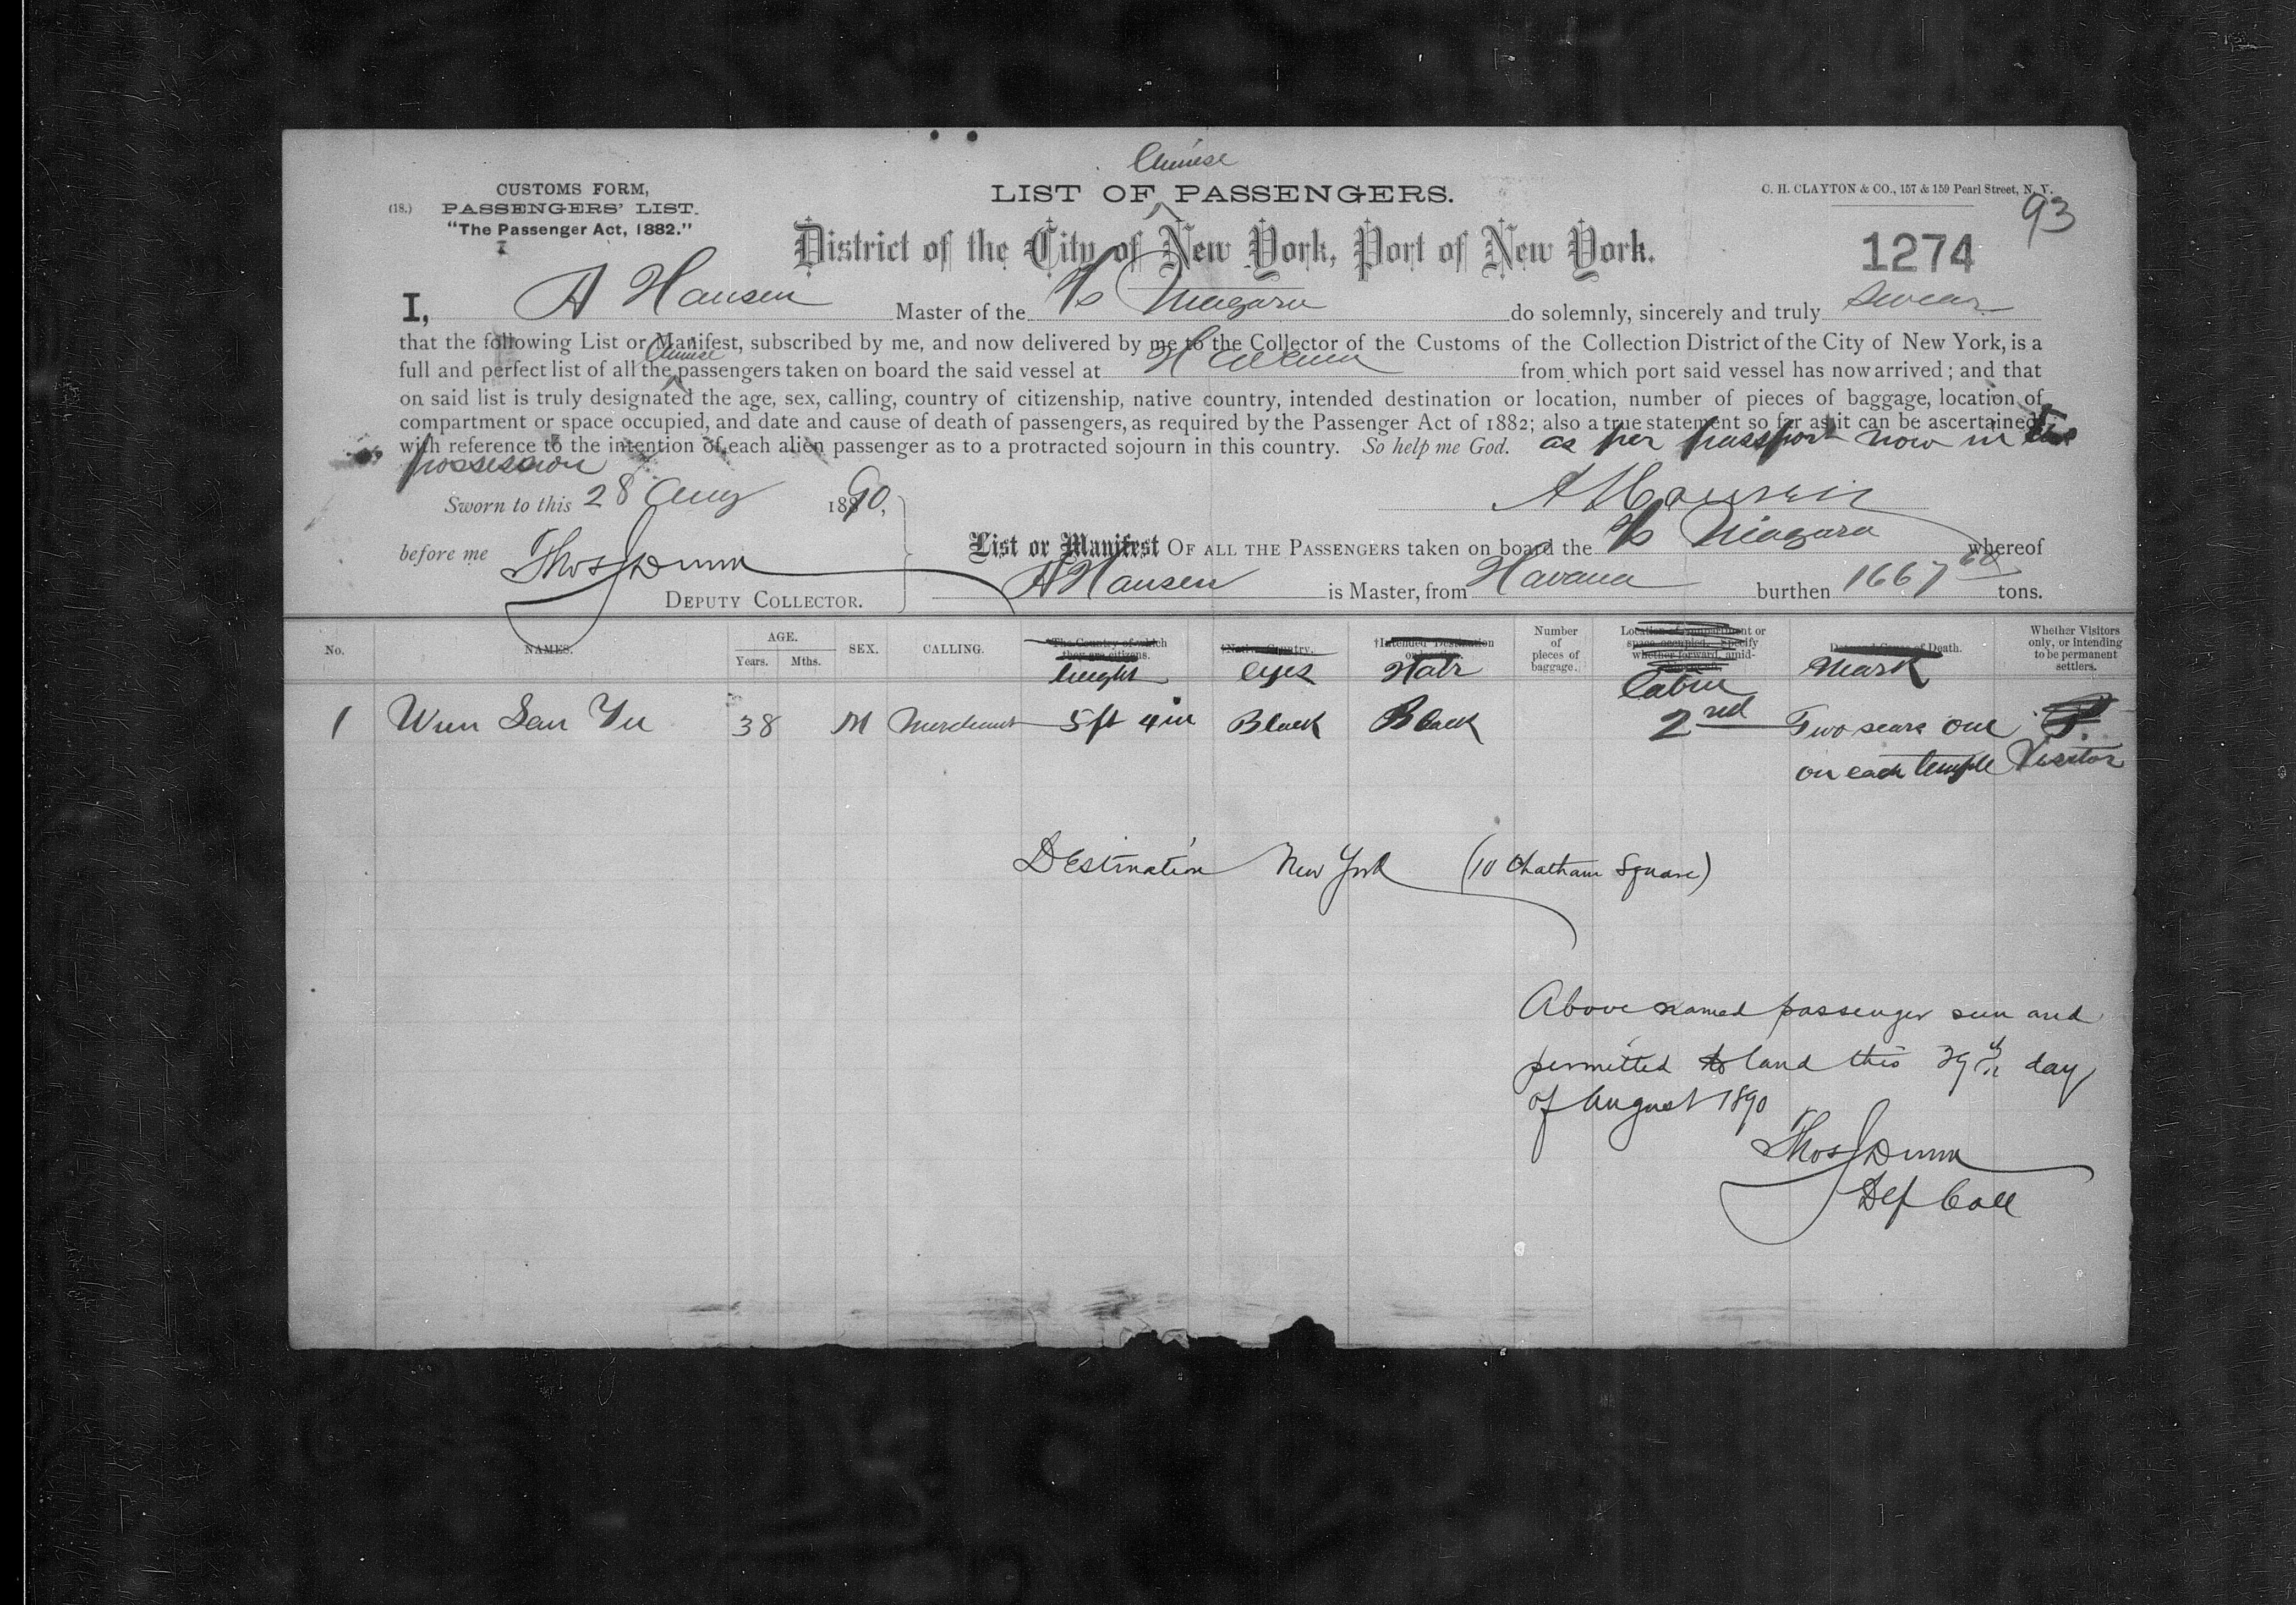 Chinese
CUSTOMS FORM,
LIST OF PASSENGERS.
C. H. CLAYTON & CO., 157 & 159 Pearl Street, N. Y.
(18.) PASSENGERS' LIST.
"The Passenger Act, 1882."
93
District of the City of New York, Port of New York.
1274
I, A Hansen Master of the S/s Niagara do solemnly, sincerely and truly swear
that the following List or Manifest, subscribed by me, and now delivered by me to the Collector of the Customs of the Collection District of the City of New York, is a
Chinese
full and perfect list of all the passengers taken on board the said vessel at Havana from which port said vessel has now arrived; and that
on said list is truly designated the age, sex, calling, country of citizenship, native country, intended destination or location, number of pieces of baggage, location of
compartment or space occupied, and date and cause of death of passengers, as required by the Passenger Act of 1882; also a true statement so far as it can be ascertained
with reference to the intention of each alien passenger as to a protracted sojourn in this country. So help me God. as per passport now in
possession
Sworn to this 28 Aug 1890,
A Hansen
before me Thos J Dunn
List or Manifest OF ALL THE PASSENGERS taken on board the S/s Niagara whereof
A Hansen is Master, from Havana burthen 1667 60 tons.
DEPUTY COLLECTOR.
No. NAMES. AGE. Years. Mths. SEX. CALLING. *The Country of which they are citizens. †Native Country. †Intended Destination or location. Number of pieces of baggage. Location of compartment or space occupied. Specify whether forward, amid- Date and Cause of Death. Whether Visitors only, or intending to be permanent settlers.
height eyes Hair Cabin Mark
1 Wun San Yu 38 M Merchant 5 ft 4 in Black Black 2nd Two scars one
on each temple Visitor
Destination New York (10 Chatham Square)
Above named passenger seen and
permitted to land this 29th day
of August 1890
Thos J Dunn
Dep Coll